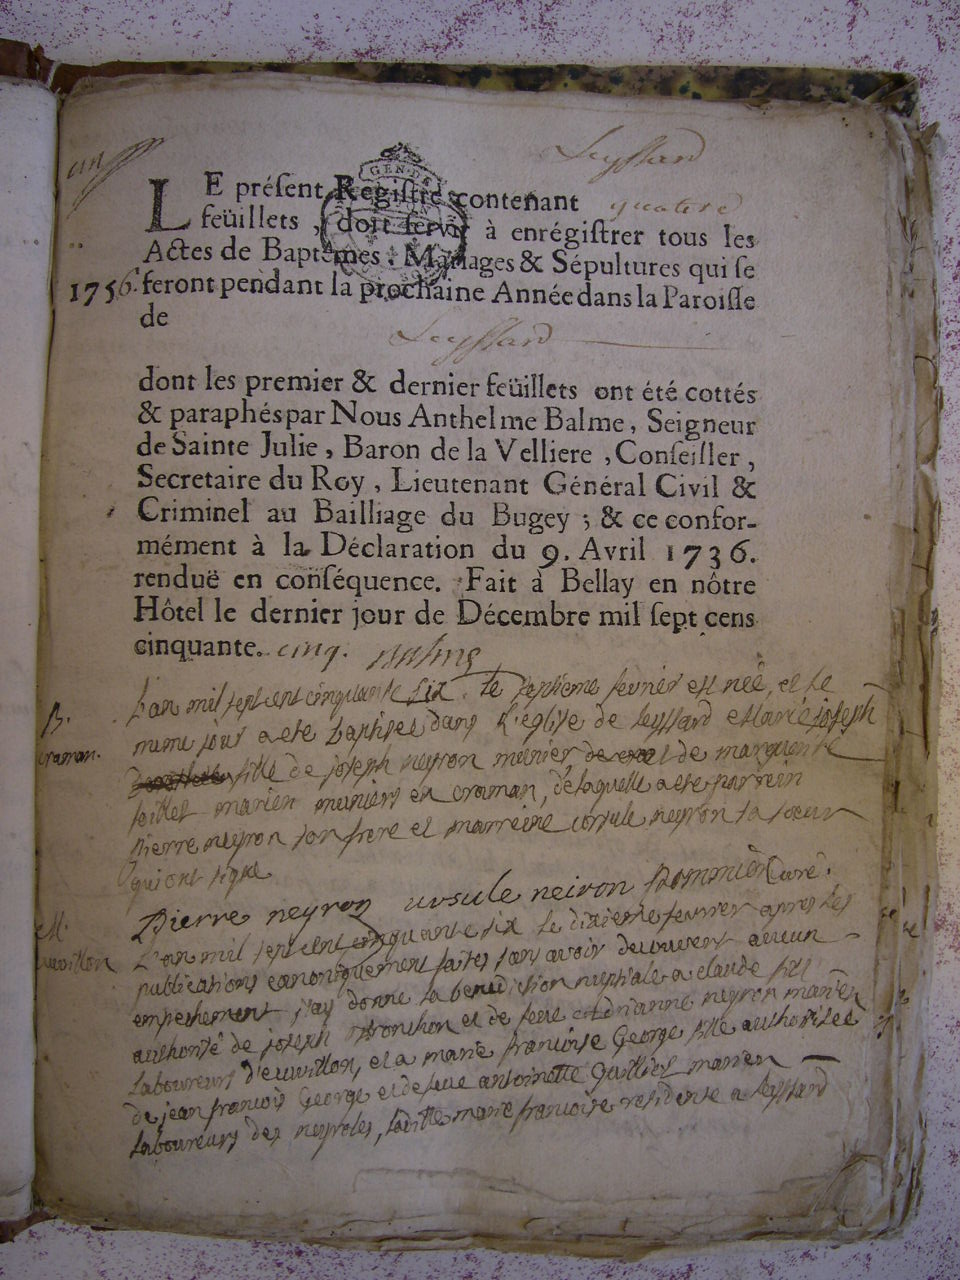 un
Leyssard
GEN. DE
LE présent Registre contenant quatorze
feüillets, doit servir à enrégistrer tous les
Actes de Baptêmes, Mariages & Sépultures qui se
1756. feront pendant la prochaine Année dans la Paroisse
de
Leyssard
dont les premier & dernier feüillets ont été cottés
& paraphés par Nous Anthelme Balme, Seigneur
de Sainte Julie, Baron de la Velliere, Conseiller,
Secretaire du Roy, Lieutenant Général Civil &
Criminel au Bailliage du Bugey; & ce confor-
mément à la Déclaration du 9. Avril 1736.
renduë en conséquence. Fait à Bellay en nôtre
Hôtel le dernier jour de Décembre mil sept cens
cinquante. cinq.
L'an mil sept cent cinquante six le septieme fevrier est neè, et le
B. meme jour a eté baptisée dans l'eglise de Leyssard Marie joseph
craman. fille de joseph neyron munier et de marguerite
maries muniers en craman, de laquelle a eté parrein
pierre neyron son frere et marreine ursule neyron sa soeur
qui ont signe
Pierre neyron ursule neiron Curé.
M. L'an mil sept cent cinquante six le dixieme fevrier apres les
publications canoniquement faites sans avoir decouvert aucun
empechement j'ay donne la benediction nuptiale a claude fils
authorisé de joseph et de feue neyron mariés
laboureurs d'euvillon, et a marie francoise George fille authorisée
de jean francois George et de feue antoinette maries
laboureurs des neyroles, laditte marie francoise residente a leyssard